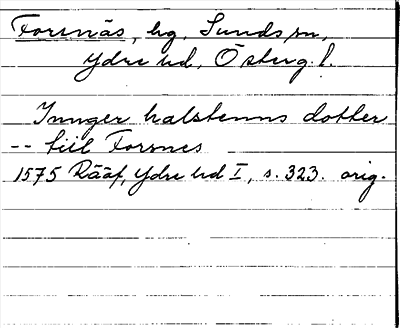 Forsnäs, hg, Sunds sn,
Ydre hd, Österg. l.
Innger halstenns dotter
-- till Forsnes
1575 Rääf, Ydre hd I, s. 323. orig.